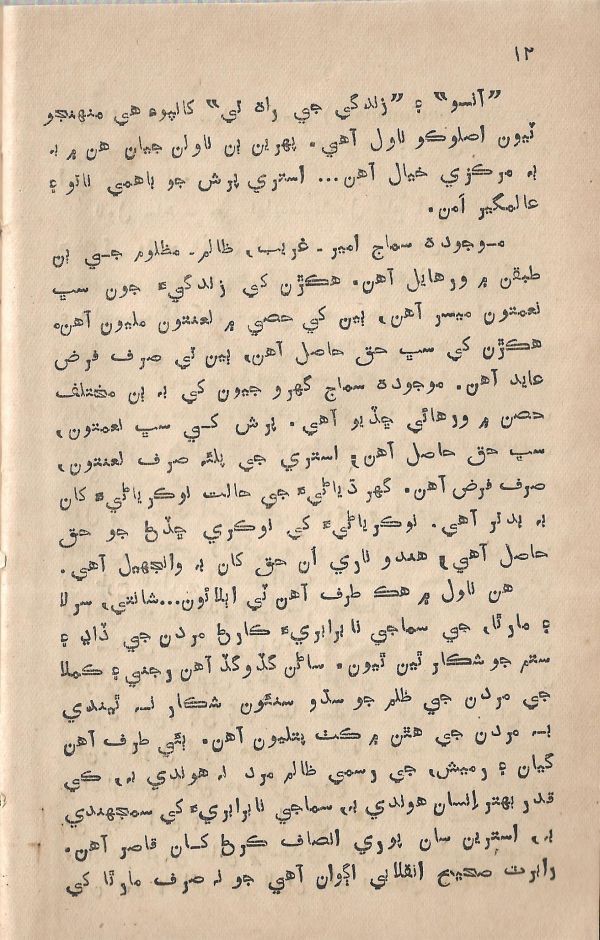 ١٢
”آنسو“ ۽ ”زندگي جي راھ تي“ کانپوءِ هي منهنجو
ٽيون اصلوڪو ناول آهي. پهرين ٻن ناولن جيان هن ۾ بہ
ٻہ مرڪزي خيال آهن... استري پرش جو باهمي ناتو ۽
عالمگير امن.
موجوده سماج امير ـ غريب، ظالم ـ مظلوم جي ٻن
طبقن ۾ ورهايل آهن. هڪڙن کي زندگيءَ جون سڀ
نعمتون ميسر آهن، ٻين کي حصي ۾ لعنتون مليون آهن.
هڪڙن کي سڀ حق حاصل آهن، ٻين تي صرف فرض
عايد آهن. موجوده سماج گهرو جيون کي بہ ٻن مختلف
حصن ۾ ورهائي ڇڏيو آهي. پرش کي سڀ نعمتون،
سڀ حق حاصل آهن؛ استري جي پلئہ صرف لعنتون،
صرف فرض آهن. گهر ڌياڻيءَ جي حالت نوڪرياڻيءَ کان
بہ بدتر آهي. نوڪرياڻيءَ کي نوڪري ڇڏڻ جو حق
حاصل آهي؛ هندو ناري اُن حق کان بہ وانجهيل آهي.
هن ناول ۾ هڪ طرف آهن ٽي ابلائون...شانتي، سرلا
۽ مارٿا، جي سماجي نابرابريءَ ڪارڻ مردن جي ڏاڍ ۽
ستم جو شڪار ٿين ٿيون. ساڻن گڏوگڏ آهن رجني ۽ ڪملا
جي مردن جي ظلم جو سڌو سنئون شڪار نہ ٿيندي
بہ مردن جي هٿن ۾ ڪٺ پتليون آهن. ٻئي طرف آهن
گيان ۽ رميش، جي رسمي ظالم مرد نہ هوندي بہ، ڪي
قدر بهتر اِنسان هوندي بہ، سماجي نابرابريءَ کي سمجهندي
بہ، استرين سان پوري انصاف ڪرڻ کان قاصر آهن.
رابرٽ صحيح انقلابي اڳوان آهي جو نہ صرف مارٿا کي